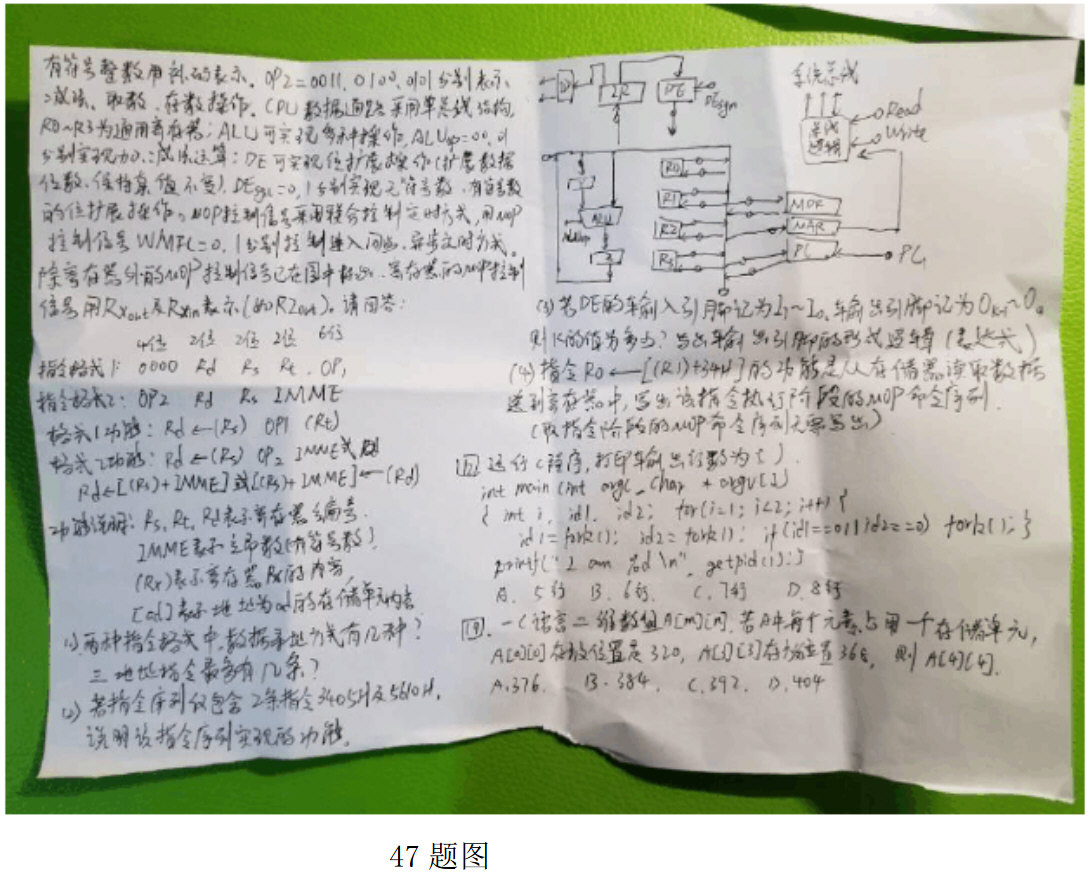 有符号整数用补码表示. OP2=0011, 0100, 0101分别表示
减法、取数、存数操作. CPU数据通路采用单总线结构,
R0~R3为通用寄存器; ALU可实现多种操作, ALUop=00, 01
分别实现加、减法运算; DE可实现位扩展操作(扩展数据
位数,保持真值不变), DEsgn=0, 1分别实现无符号数、有符号数
的位扩展操作。MOP控制信号采用联合控制定时方式, 用MOP
控制信号WMFC=0, 1分别控制进入同步、异步定时方式。
除寄存器外的MOP控制信号已在图中标出, 寄存器的MOP控制
信号用RXout及RXin表示(如R2out), 请问答:
4位 2位 2位 2位 6位
指令格式1: 0000 Rd Rs Rt OP1
指令格式2: OP2 Rd Rs IMME
格式1功能: Rd←(Rs) OP1 (Rt)
格式2功能: Rd←(Rs) OP2 IMME或
Rd←[(Rs)+IMME]或[(Rs)+IMME]←(Rd)
功能说明: Rs, Rt, Rd表示寄存器编号.
IMME表示立即数(有符号数).
(Rx)表示寄存器Rx的内容
[ad]表示地址为ad的存储单元内容
1)两种指令格式中,数据寻址方式有几种?
三地址指令最多有几条?
2)若指令序列仅包含2条指令3405H及5610H,
说明该指令序列实现的功能.
IR
DE
DEsgn
ALU
ALUop
R0
R1
R2
R3
系统总线
总线
逻辑
Read
Write
MDR
MAR
PC
(3)若DE的输入引脚记为I7~I0, 输出引脚记为OK-1~O0
则K的值为多少?写出输出引脚的形成逻辑(表达式)
(4)指令R0←[(R1)+34H]的功能是从存储器读取数据
送到寄存器中,写出该指令执行阶段的MOP命令序列.
(取指令阶段的MOP命令序列无需写出)
运行C程序,打印输出行数为( ).
int main(int argc, char * argv[])
{ int i, id1, id2; for(i=1; i<2; i++) {
id1=fork(); id2=fork(); if(id1==0||id2==0) fork(); }
printf("I am %d \n", getpid());}
A. 5行 B. 6行 C. 7行 D. 8行
一C语言二维数组A[m][n], 若A中每个元素占用一个存储单元,
A[0][0]存放位置是320, A[3][3]存放位置368, 则A[4][4].
A.376. B.384. C.392. D.404
47 题图